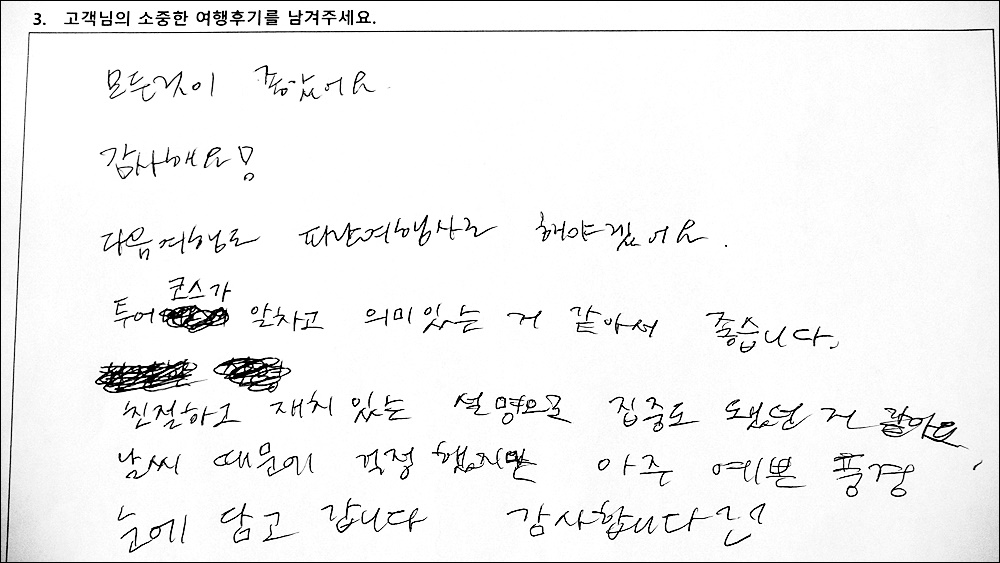 3. 고객님의 소중한 여행후기를 남겨주세요.
모든것이 좋았어요
감사해요!
다음여행도 파란여행사로 해야겠어요.
투어 코스가 알차고 의미있는 거 같아서 좋습니다.
친절하고 재치 있는 설명으로 집중도 됐던 거 같아요
날씨 때문에 걱정 했지만 아주 예쁜 풍경
눈에 담고 갑니다 감사합니다